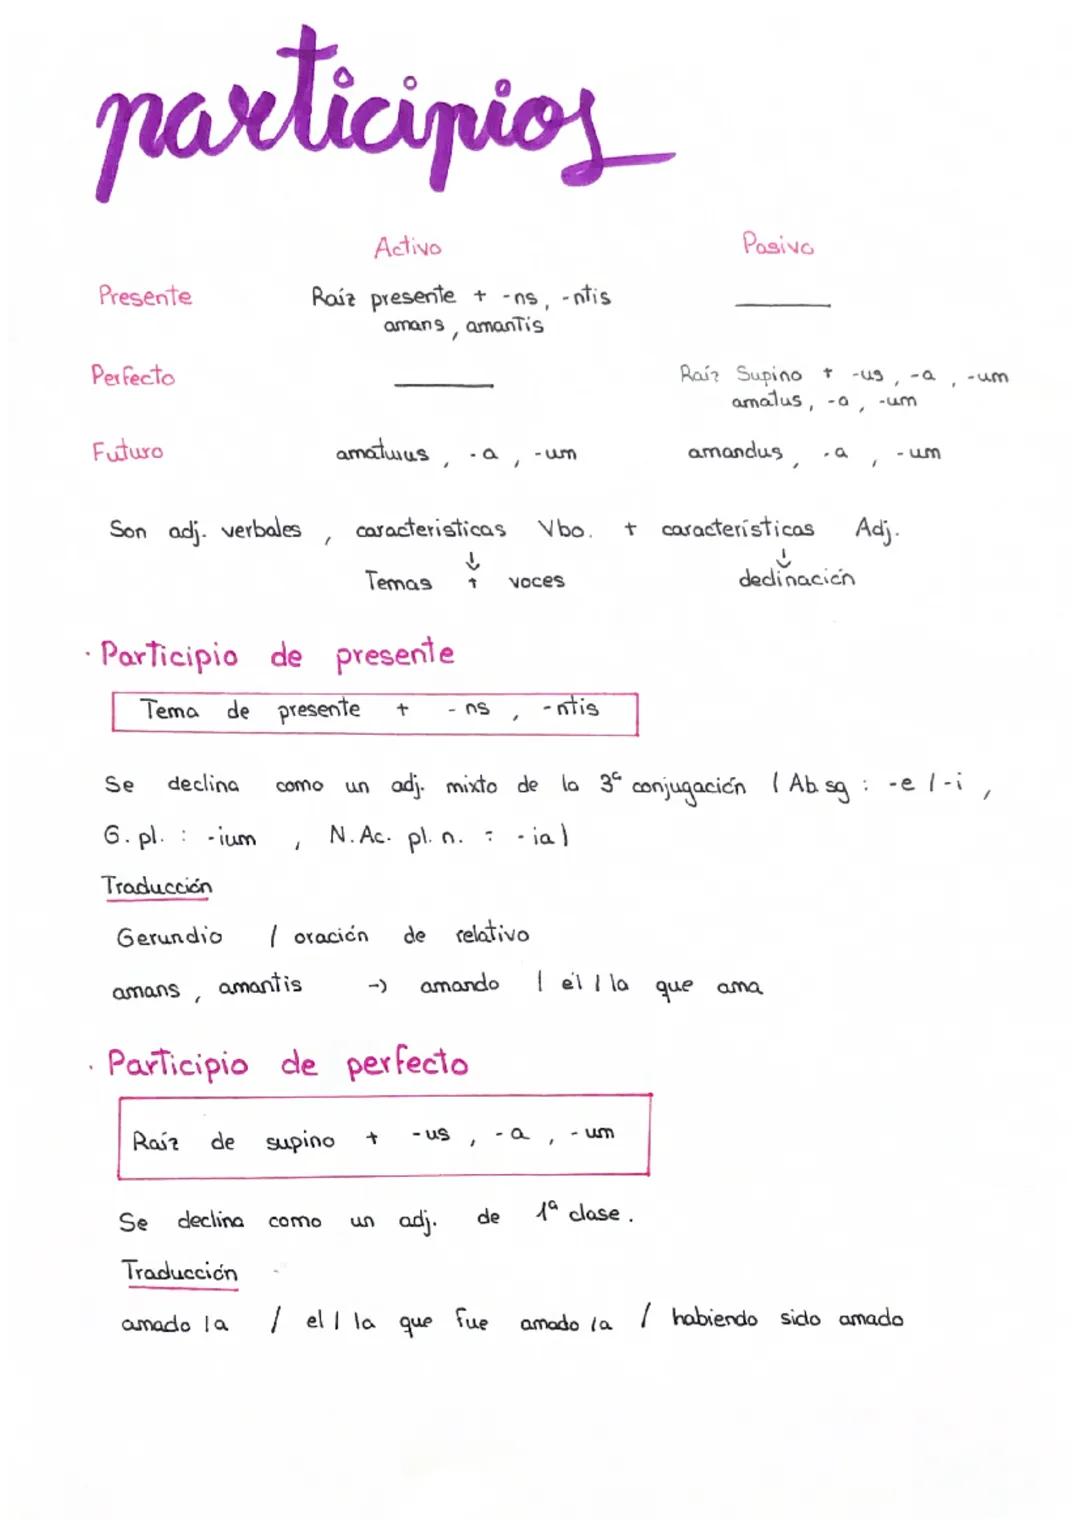 participios
Activo Pasivo
Presente Raíz presente + -ns, -ntis
amans, amantis
Perfecto Raíz Supino + -us, -a, -um
amatus, -a, -um
Futuro amaturus, -a, -um amandus, -a, -um
Son adj. verbales, características Vbo. + características Adj.
Temas + voces declinación
· Participio de presente
Tema de presente + -ns, -ntis
Se declina como un adj. mixto de la 3ª conjugación (Ab. sg : -e / -i,
G. pl. : -ium, N. Ac. pl. n. : -ia)
Traducción
Gerundio / oración de relativo
amans, amantis -> amando / él / la que ama
· Participio de perfecto
Raíz de supino + -us, -a, -um
Se declina como un adj. de 1ª clase.
Traducción
amado /a / el / la que fue amado /a / habiendo sido amado